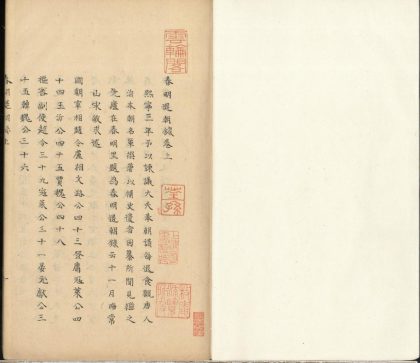 春明退朝錄卷上
熙寧三年予以諫議大夫奉朝請每退食觀唐人
洎本朝名輩撰著以補史遺者因纂所聞見繼之
先廬在春明里題為春明退朝錄云十一月晦常
山宋敏求述
國朝宰相趙令盧相文潞公四十三登庸寇萊公四
十四王沂公四十五賈魏公四十八
樞密副使趙令三十九寇萊公三十一晏元獻公三
十五韓魏公三十六
春明退朝錄上
雲輪閣
荃孫